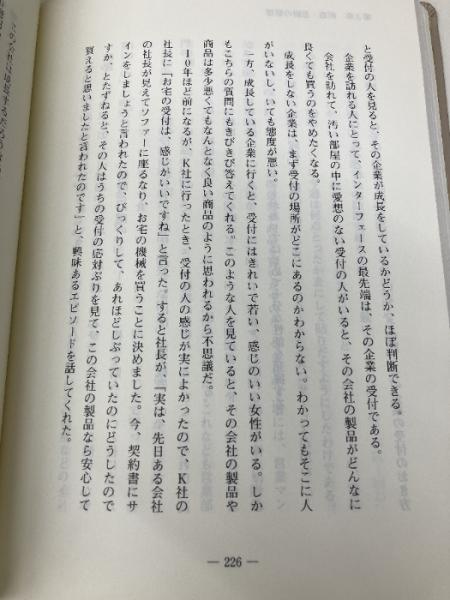 と受付の人を見ると、その企業が成長をしているかどうか、ほぼ判断できる。
企業を訪れる人にとって、インターフェースの最先端は、その企業の受付である。
会社を訪れて、汚い部屋の中に愛想のない受付の人がいると、その会社の製品がどんなに
良くても買うのをやめたくなる。
成長をしない企業は、まず受付の場所がどこにあるのかわからない。わかってもそこに人
がいないし、いても態度が悪い。
一方、成長している企業に行くと、受付にはきれいで若い、感じのいい女性がいる。しか
もこちらの質問にもきびきび答えてくれる。このような人を見ていると、その会社の製品や
商品は多少悪くてもなんとなく良い商品のように思われるから不思議だ。
一〇年ほど前になるが、K社に行ったとき、受付の人の感じが実によかったので、K社の
社長に「お宅の受付は、感じがいいですね」と言った。すると社長が、「実は、先日ある会社
の社長が見えてソファーに座るなり、お宅の機械を買うことに決めました。今、契約書にサ
インをしましょうと言われたので、びっくりして、あれほどしぶっていたのにどうしたので
すか、とたずねると、その人はうちの受付の応対ぶりを見て、この会社の製品なら安心して
買えると思いましたと言われたのです」と、興味あるエピソードを話してくれた。
― 226 ―